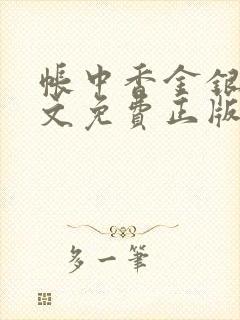 帳中香金銀
文免費正版
多一筆